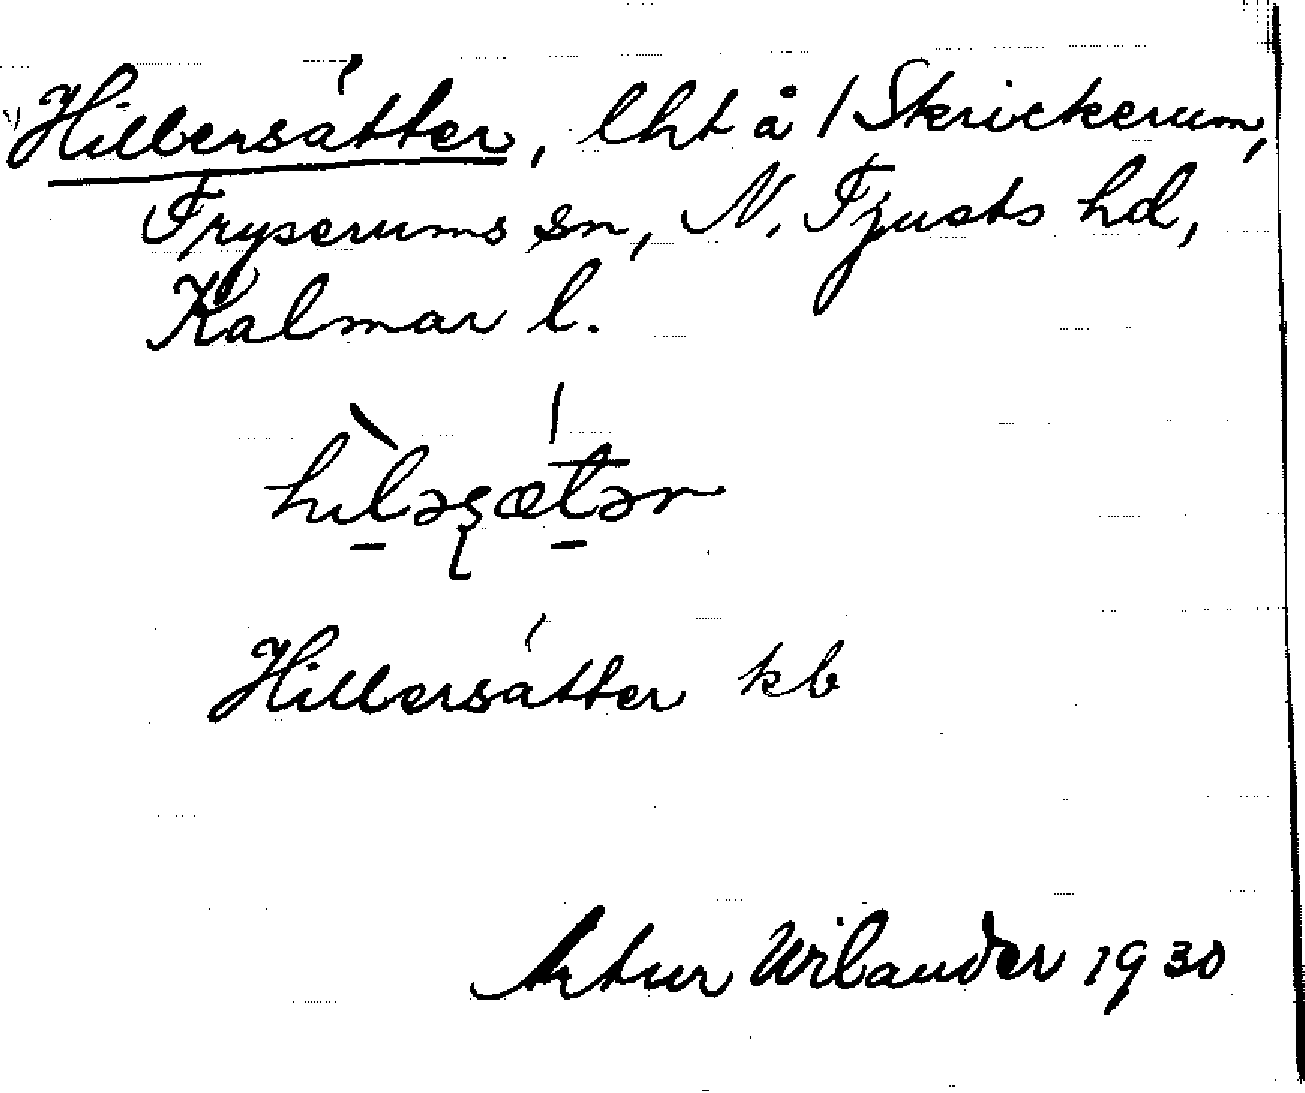 Hillersätter, lht å / Skrickerum,
Tryserums sn, N. Tjusts hd,
Kalmar l.
Hillersätter kb
Artur Wilander 1930